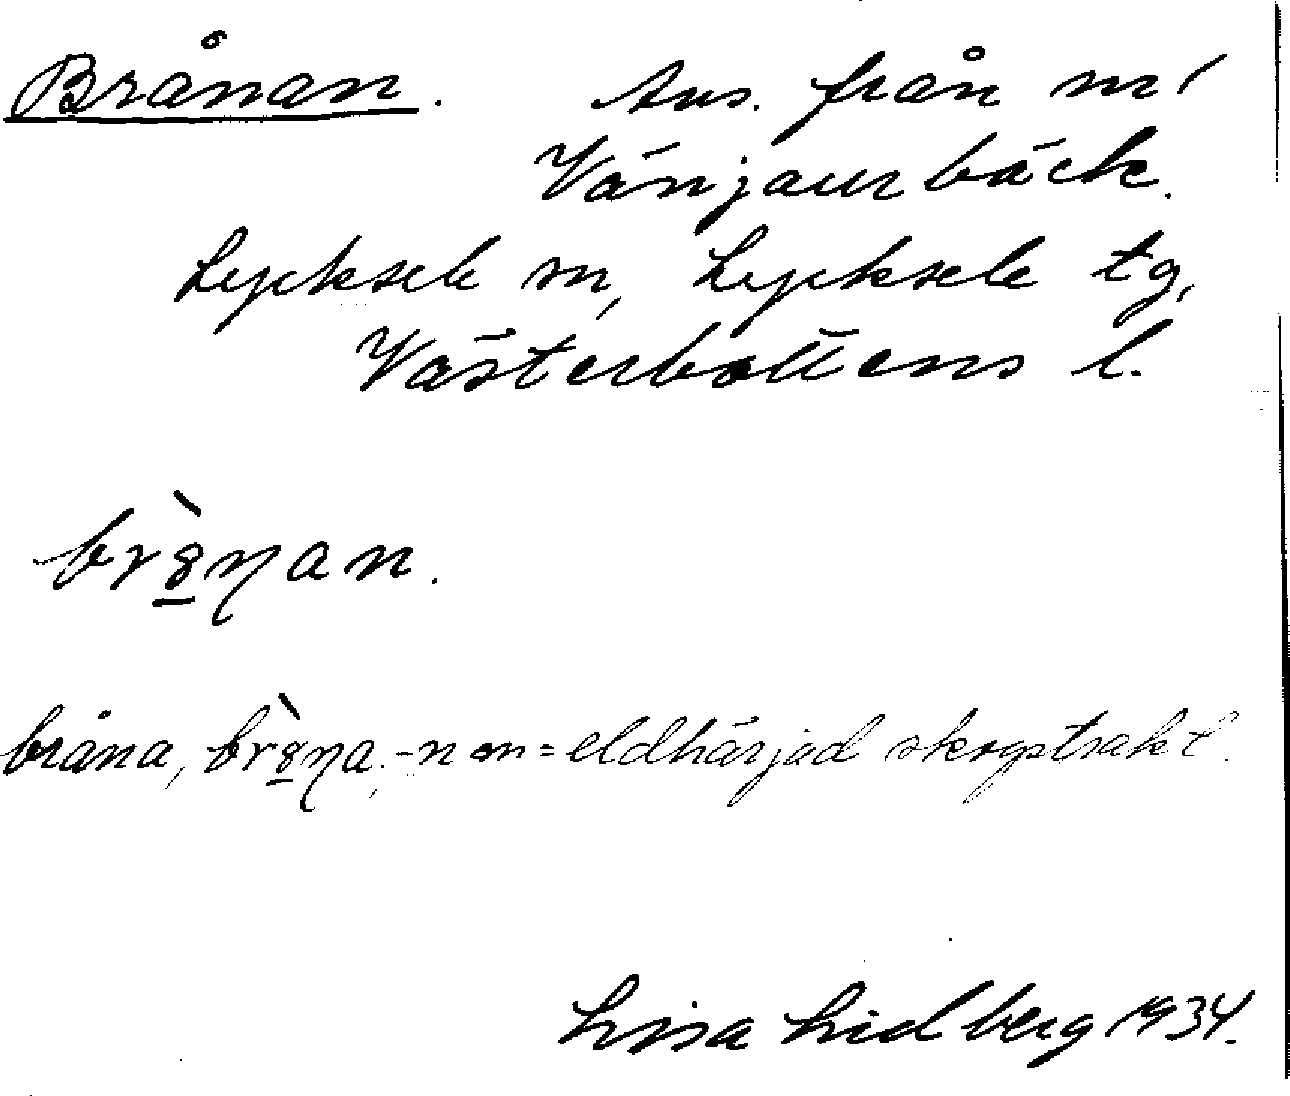 Brånan. Aus. från n/
Vänjaurbäck.
Lycksele sn, Lycksele tg,
Västerbottens l.
br8̲̀ŋan.
bråna, br8̲̀ŋa, -n = eldhärjad skogstrakt.
Lisa Lidberg 1934.